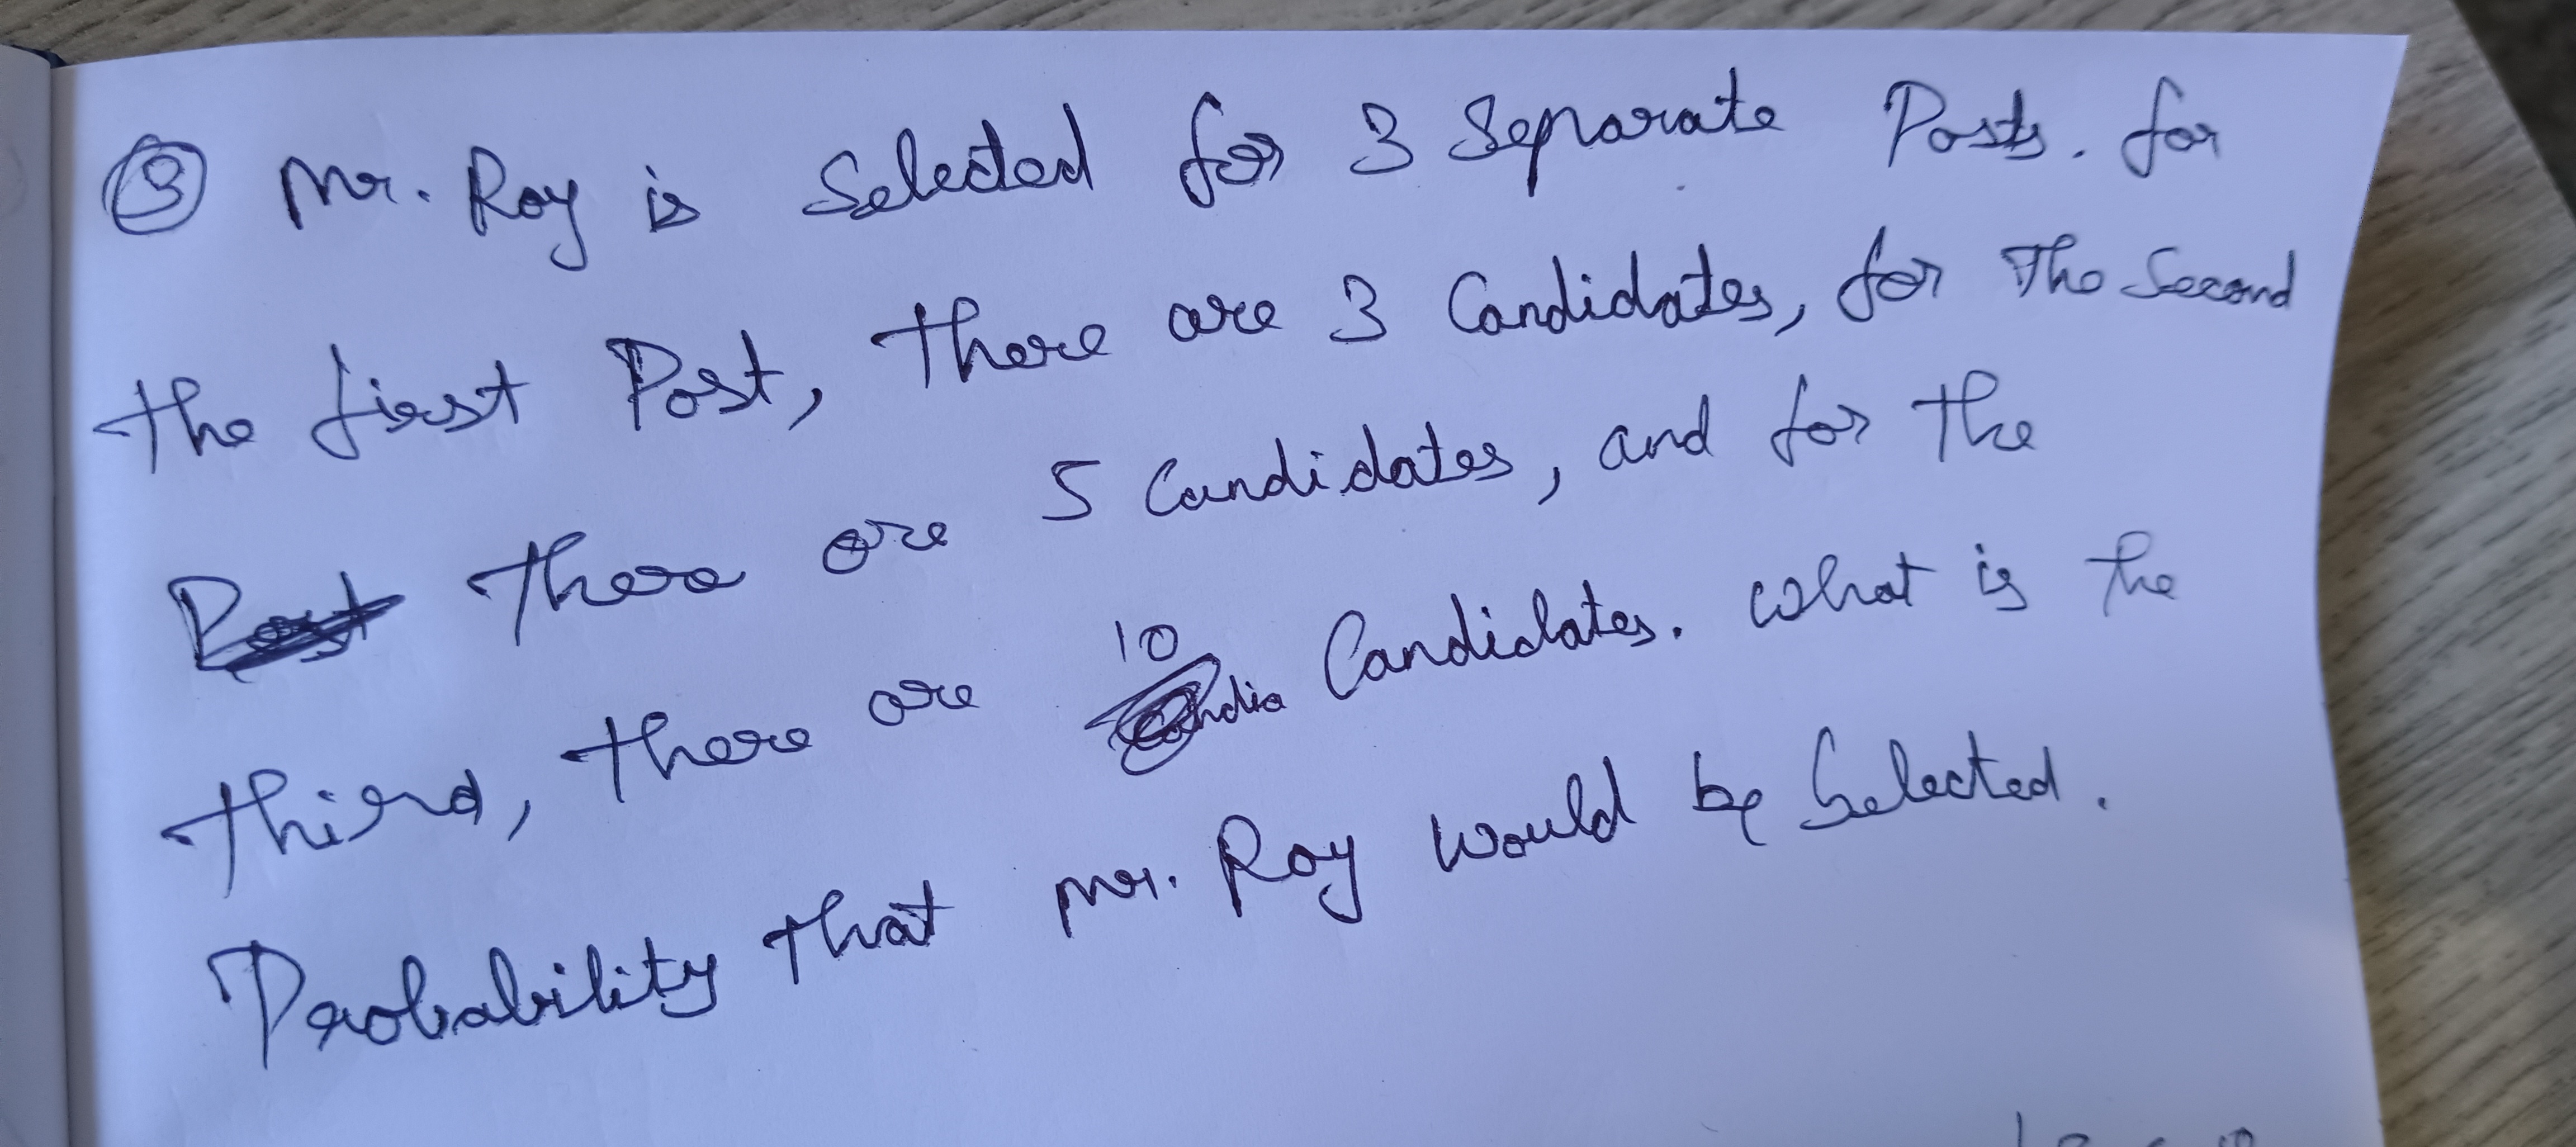 ③ Mr. Roy is Selected for 3 Separate Posts. for
the first Post, there are 3 Candidates, for The Second
there are 5 Candidates, and for the
third, there are 10 Candidates. What is the
Probability that Mr. Roy would be Selected.